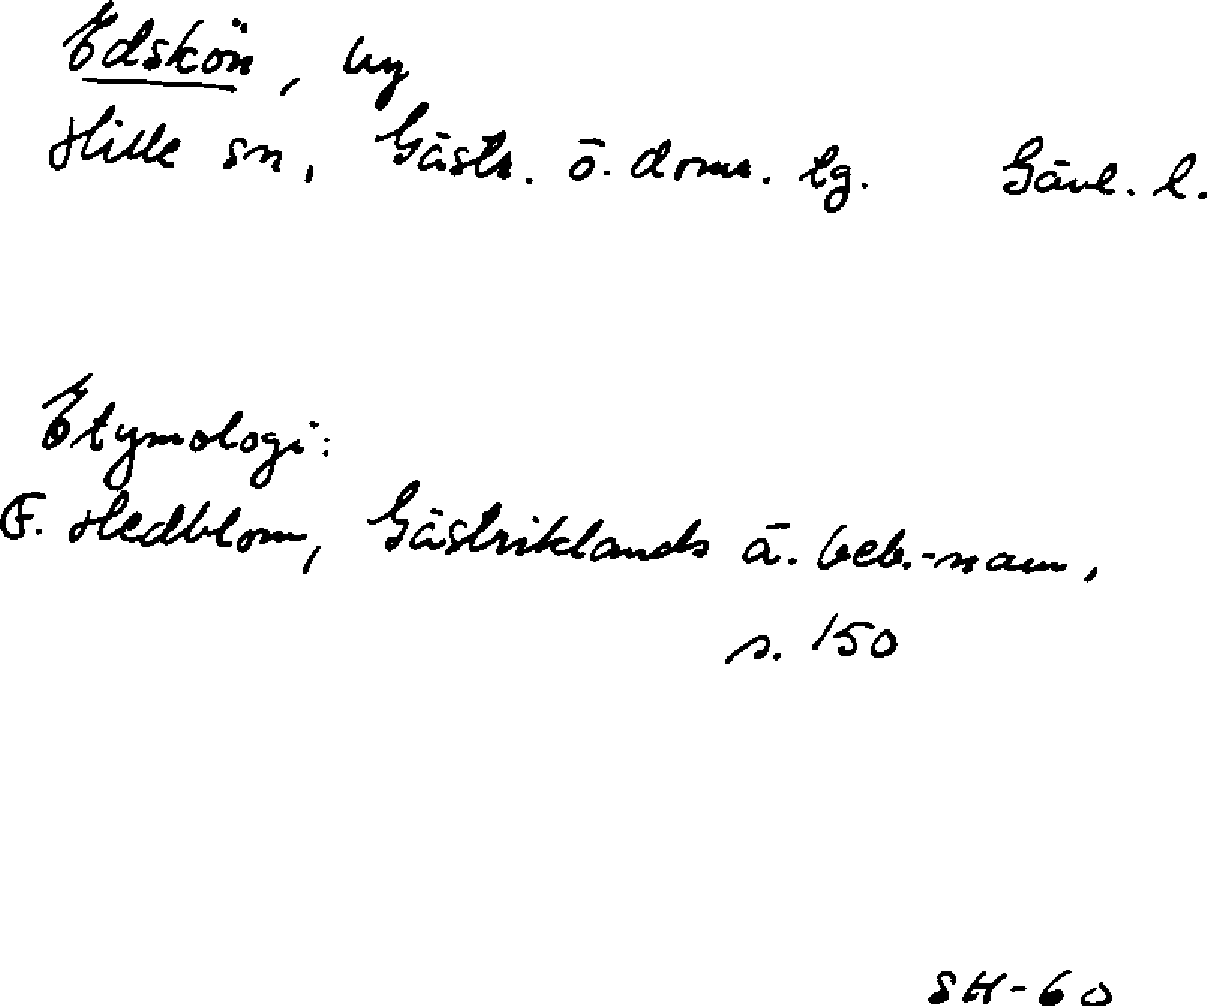 Edskön, by
Hille sn, Gästr. ö. doms. tg. Gävl. l.
Etymologi:
F. Hedblom, Gästriklands ä. beb.-namn,
s. 150
SH-60